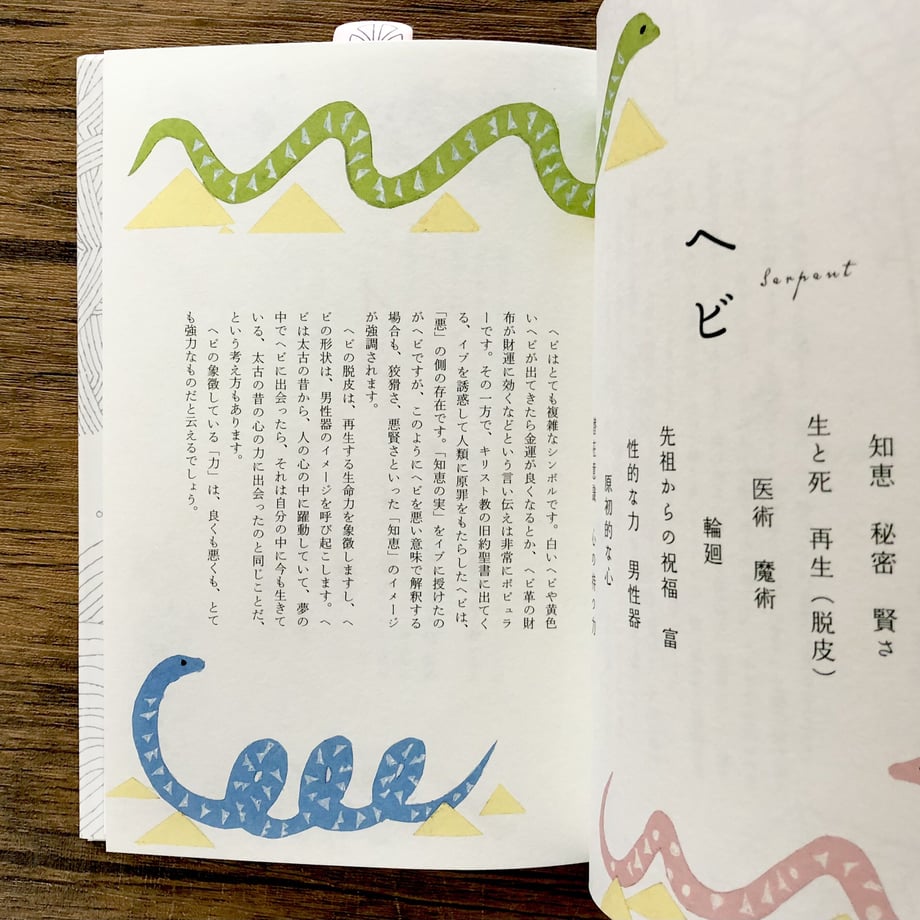 ヘビ
Serpent
知恵 秘密 賢さ
生と死 再生(脱皮)
医術 魔術
輪廻
先祖からの祝福 富
性的な力 男性器
原初的な心
ヘビはとても複雑なシンボルです。白いヘビや黄色
いヘビが出てきたら金運が良くなるとか、ヘビ革の財
布が財運に効くなどという言い伝えは非常にポピュラ
ーです。その一方で、キリスト教の旧約聖書に出てく
る、イブを誘惑して人類に原罪をもたらしたヘビは、
「悪」の側の存在です。「知恵の実」をイブに授けたの
がヘビですが、このようにヘビを悪い意味で解釈する
場合も、狡猾さ、悪賢さといった「知恵」のイメージ
が強調されます。
ヘビの脱皮は、再生する生命力を象徴しますし、ヘ
ビの形状は、男性器のイメージを呼び起こします。ヘ
ビは太古の昔から、人の心の中に躍動していて、夢の
中でヘビに出会ったら、それは自分の中に今も生きて
いる、太古の昔の心の力に出会ったのと同じことだ、
という考え方もあります。
ヘビの象徴している「力」は、良くも悪くも、とて
も強力なものだと云えるでしょう。